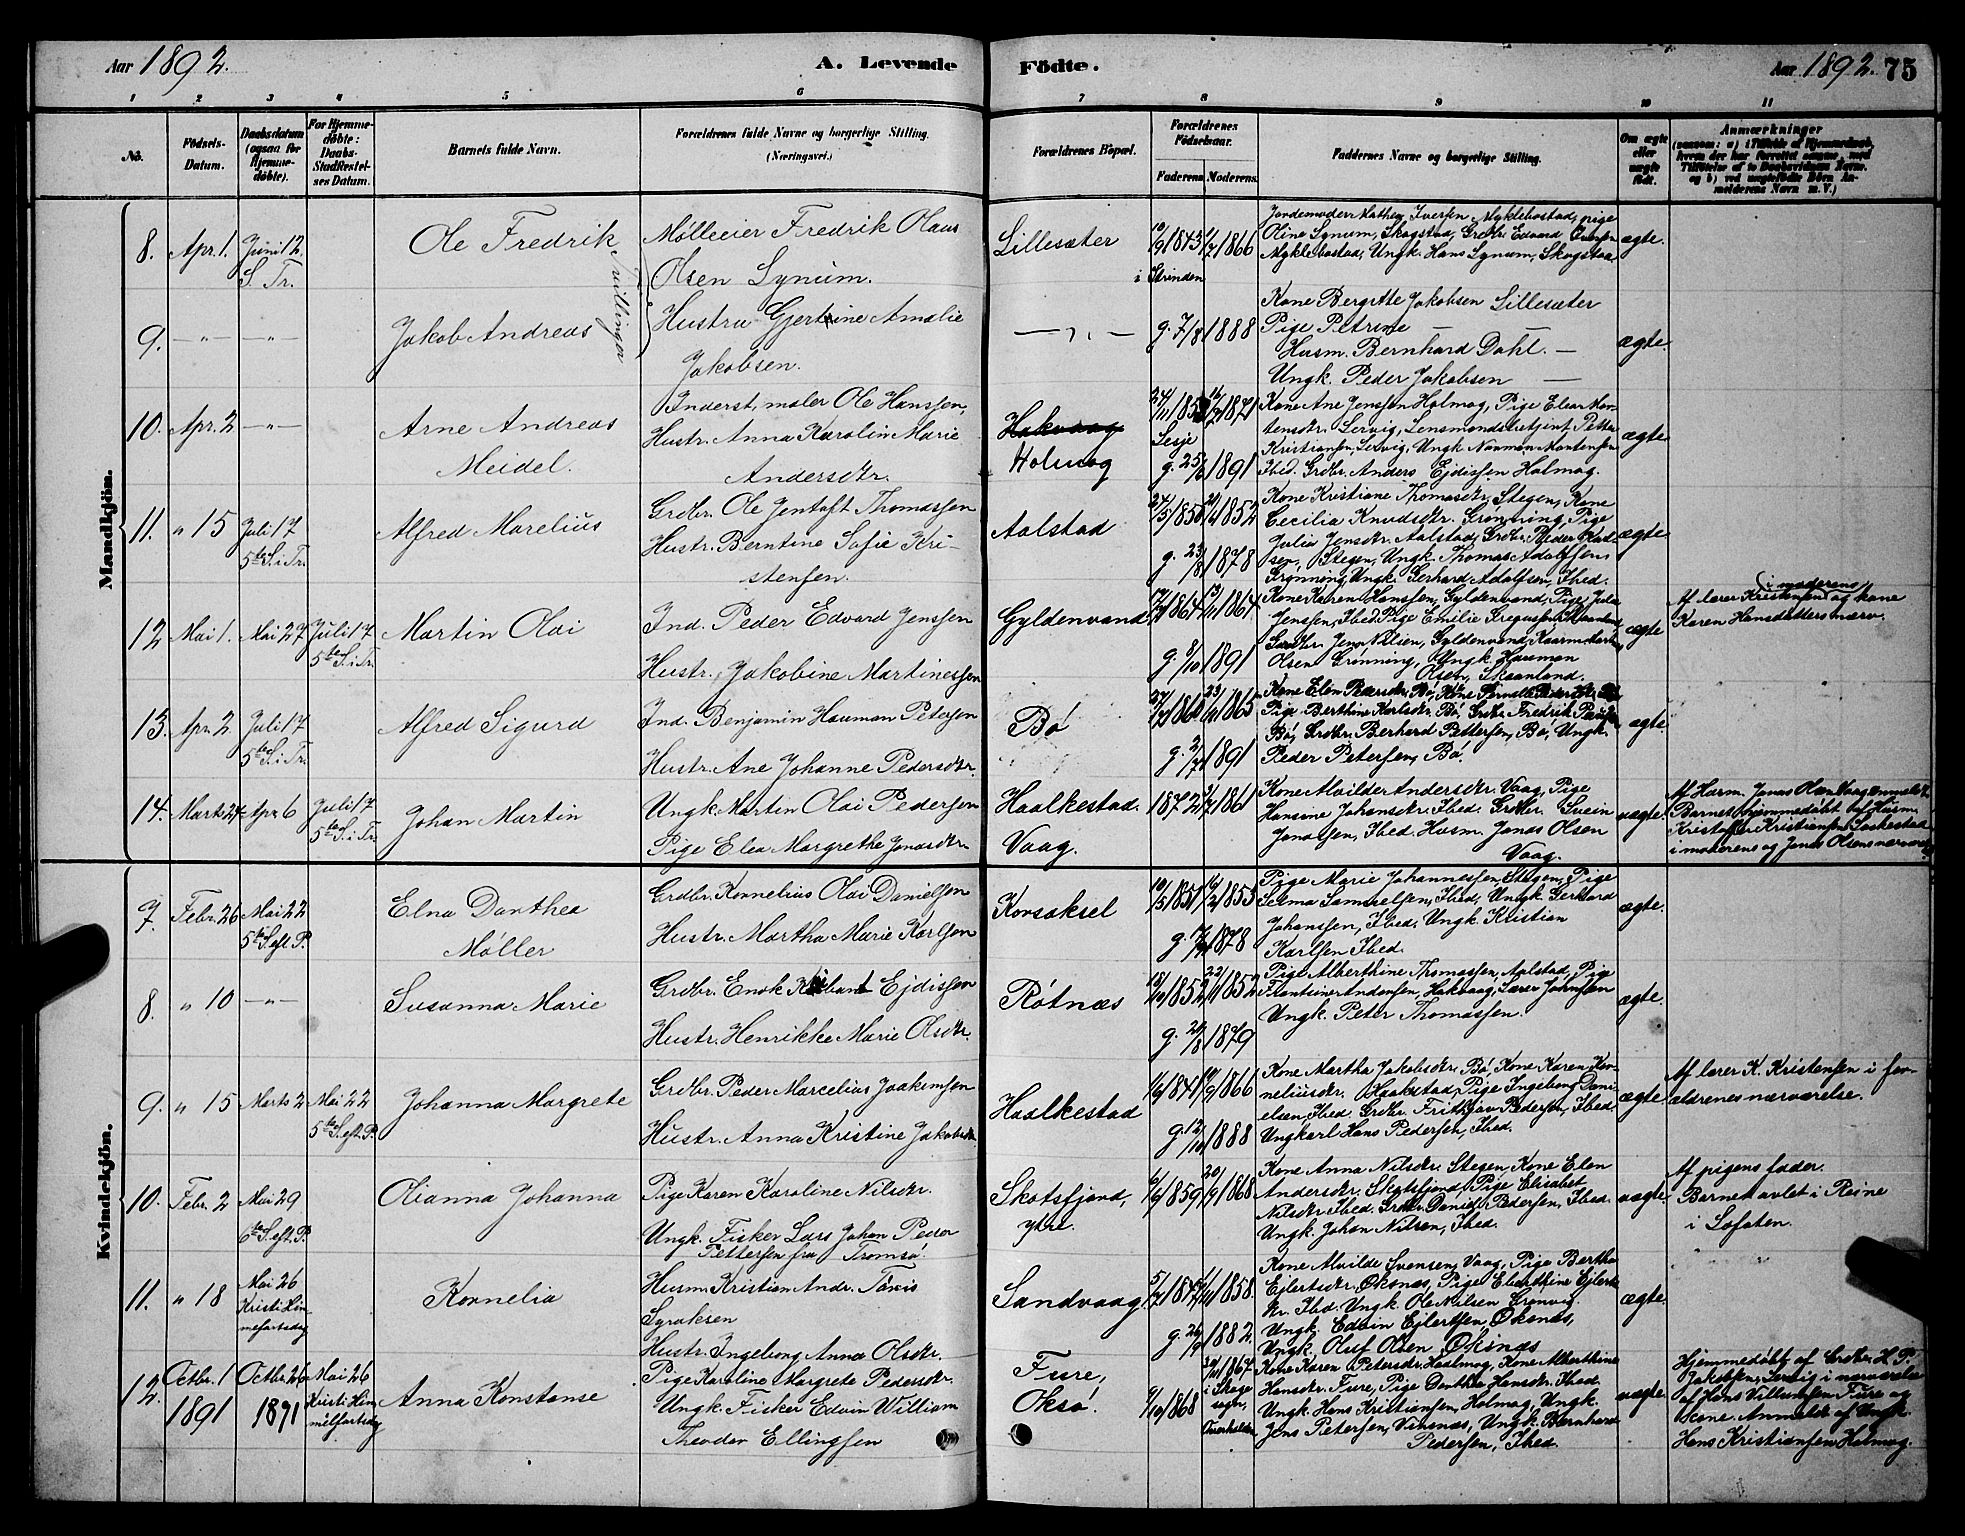 Aar 1892.
A. Levende
Födte.
Aar 1892. 75
1 2 3 4 5 6 7 8 9 10 11
No.
Födsels-
Datum.
Daabsdatum
(ogsaa for
Hjemme-
döbte).
For Hjemme-
döbte:
Daabs-
Stadfæstel-
ses Datum.
Barnets fulde Navn.
Forældrenes fulde Navne og borgerlige Stilling.
(Næringsvei.)
Forældrenes Bopæl.
Forældrenes
Födselsaar.
Faderens. Moderens.
Faddernes Navne og borgerlige Stilling.
Om ægte
eller
uægte
födt.
Anmærkninger
Mandkjön.
8. Apr. 1. Juni 12.
S. Tr.
Ole Fredrik
Tvillinger
Møllieier Fredrik Olaus
Olsen Lynum.
Hustru Gjertine Amalie
Jakobsen.
Lillesæter
i Strinden
1866
Jordemoder Mathea Iversen Myklebostad, pige
Oline Lynum, Skogstad, Grdbr. Edvard Iversen
Myklebostad, Ungk. Hans Lynum, Skogstad
ægte.
9. —"— —"—
Jakob Andreas
g. 7/8 1888
Kone Bergitte Jakobsen Lillesæter
Pige Petrine —
Husm. Bernhard Dahl. —
Ungk. Peder Jakobsen —
ægte.
10. Apr. 2 —"—
Arne Andreas
Meidel.
Inderst, maler Ole Hanssen,
Hustr. Anna Karolin Marie
Andersdtr.
Hakvaag
Holmog
1871
Lesje
g. 25/ 1891
Kone Ane Jenssen Holmog, Pige Elea Mor-
tensdtr. Servig, Lensmandsbetjent Petter
Kristiansen, Servig, Ungk. Normann Mortensen
Ibid. Grdbr. Anders Ejdissen Holmog.
ægte
11. " 15 Juli 17
5te S. i Tr.
Alfred Marelius
Grdbr. Ole Jentoft Thomassen
Hustr. Berntine Sofie Kri-
stensen.
Aalstad
1852
g. 23/8 1878
Kone Kristiane Thomasdtr, Stegen, Kone
Cecilia Knudsdtr. Grønning, Pige
Julia Jensdtr. Aalstad, Grdbr. Peder
Stegen, Ungk. Thomas Adolfsen
Grønning, Ungk. Gerhard Adolfsen, Ibed.
ægte
12. Mai 1. Mai 27 Juli 17
5te S. i Tr.
Martin Olai
Ind. Peder Edvard Jenssen
Hustr. Jakobine Martinessen
Gyldenvand
1864 1864.
g. 8/10 1891
Kone Karen Hanssen, Gyldenvand, Pige Jula
Jenssen, Ibed, Pige Emilie
Jens Nilsen, Gyldenvand,
Olsen Grønning, Ungk.
Olsen, Skaanland.
ægte
Af lærer Kristensen og kone
i moderens
Karen Hansdatters nærv.
13. Apr. 2 Juli 17
5te S. i Tr.
Alfred Sigurd
Ind. Benjamin Hauman Petersen
Hustr. Ane Johanne Pedersdtr.
Bø
1865
g. 2/7 1891
Kone Elen Pedersdtr. Bø,
Pige Berthine Karlsdtr. Bø, Grdbr. Fredrik
Bø, Grdbr. Berhard Pettersen, Bø, Ungk.
Peder Petersen, Bø.
ægte
14. Marts 24 Apr. 6 Juli 17
5te S. i Tr.
Johan Martin
Ungk. Martin Olai Pedersen
Pige Elea Margrethe Jonasdtr.
Haalkestad.
Vaag.
1872 1861
Kone Alvilde Andersdtr. Vaag, Pige
Hansine Johansdtr. Ibed. Grdbr. Svein
Jonassen, Ibed. Husm. Jonas Olsen
Vaag.
uægte.
Af Husm. Jonas Olsen Vaag anmeldt.
Barnet hjemmedøbt af Husm.
Kristofer Kristiansen
i moderens og Jonas Olsens nærværelse
Kvindekjön.
7. Febr. 26 Mai 22
5te S. eft. P.
Elna Dorthea
Møller
Grdbr. Kornelius Olai Danielsen
Hustr. Martha Marie Karlsen
Korsaksel
1851 1853
g. 1878
Pige Marie Johannessen, Stegen, Pige
Selma Samuelsen, Ibed, Ungk. Gerhard
Johanssen, Ibed, Ungk. Kristian
Karlsen Ibed.
ægte.
8. " 10 —"—
Susanna Marie
Grdbr. Enok Ejdissen
Hustr. Henrikke Marie Olsdtr.
Røtnæs
1852 1852
g. 1879
Pige Alberthine Thomassen, Aalstad, Pige
Andersen, Hakvaag, Lærer Johnsen
Ungk. Peter Thomassen.
ægte.
9. " 15 Marts 2 Mai 22
5te S. eft. P.
Johanna Margrete
Grdbr. Peder Marcelius Joakimsen
Hustr. Anna Kristine Jakobsdtr
Haalkestad
1841 1866
g. 12/10 1888
Kone Martha Jakobsdtr. Bø, Kone Karen Kor-
neliusdtr. Haalkestad, Pige Ingeborg Dani-
elsen, Ibed. Grdbr. Frithjov Pedersen, Ibed.
Ungkarl Hans Pedersen, Ibed.
ægte.
Af lærer K. Kristensen i for-
ældrenes nærværelse.
10. Febr. 2 Mai 29
6te S. eft. P.
Olianna Johanna
Pige Karen Karoline Nilsdtr.
Ungk. Fisker Lars Johan Peder
Pettersen fra Tromsø.
Skotsfjord,
ytre.
1859 1868
Kone Anna Nilsdtr. Stegen, Kone Elen
Andersdtr. Skotsfjord, Pige Elisabet
Nilsdtr. Ibed. Grdbr. Daniel Pedersen, Ibed.
Ungk. Johan Nilsen, Ibed.
uægte
Af pigens fader.
Barnet avlet i Reine
i Lofoten.
11. " 18 Mai 26
Kristi Him
melfartsdag
Kornelia
Husm. Kristian Andr. Tøxis
Syraksen
Hustr. Ingeborg Anna Olsdtr.
Sandvaag
1858.
g. 1882.
Kone Alvilde Svensen, Vaag, Pige Bertha
Ejlertsdtr. Øksnæs, Pige Elberthine Ejlerts-
dtr. Ibed. Ungk. Ole Nilsen Grønvig.
Ungk. Edvin Ejlertsen, Øksnæs,
Ungk. Oluf Olsen, Øksnæs
ægte.
12. Octbr. 1 Octbr. 26 Mai 26
1891 1891 Kristi Him
melfartsdag
Anna Konstanse
Pige Karoline Margrete Pedersdtr.
Ungk. Fisker Edvin William
Theodor Ellingsen
Fure,
Oksø.
1868 1867
i Skage
sogn,
Overhalden
Kone Karen Petersdtr. Haalmog, Kone Alberthine
Hansdtr. Fure, Pige Dorthea Hansdtr. Ibed.
Ungk. Hans Kristiansen, Holmog, Ungk.
Jens Petersen, Vinsnæs, Ungk. Bernhard
Pedersen, Ibed.
uægte
Hjemmedøbt af Grdbr. H. P.
Jakobsen, Servig i nærværelse
af Hans Villumsen Fure og
kone. Anmeldt af Ungk.
Hans Kristiansen Holmog.